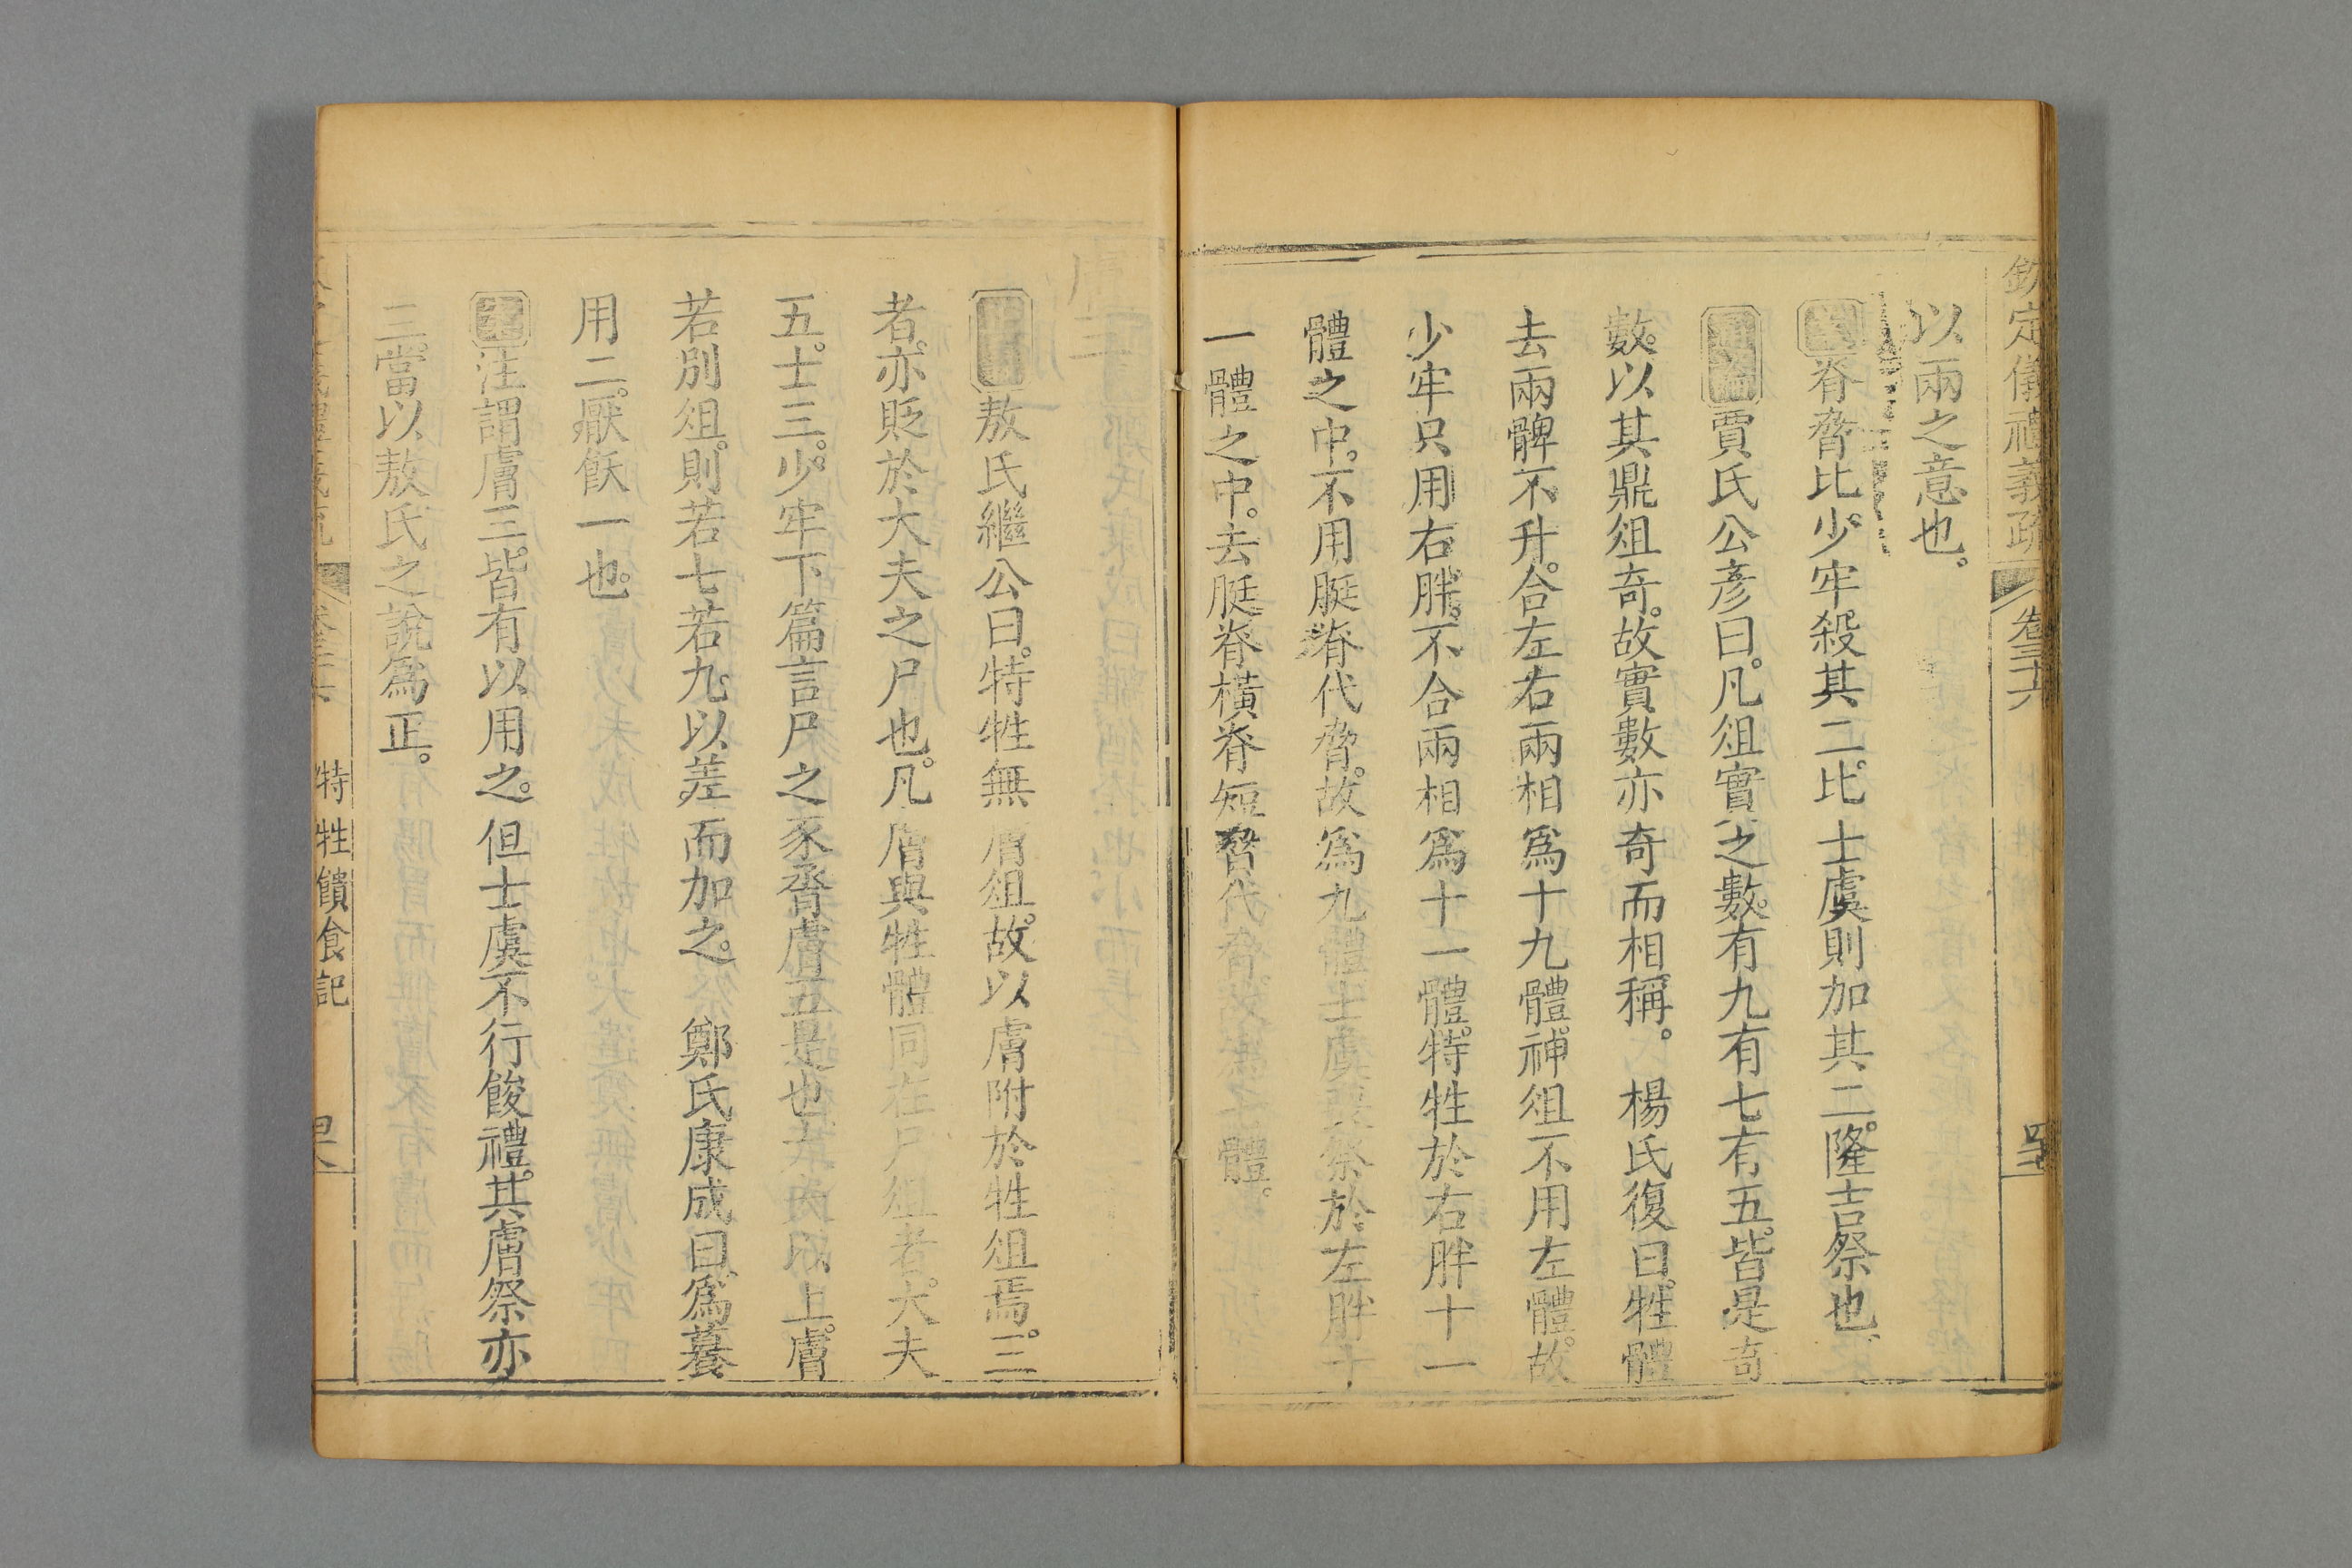 欽定儀禮義疏 卷三六
以兩之意也。
脊脅比。少牢殺其二。比士虞則加其二。隆吉祭也。
通論 賈氏公彥曰。凡俎實之數。有九有七有五。皆是奇
數。以其鼎俎奇。故實數亦奇而相稱。 楊氏復曰。牲體
去兩髀不升。合左右兩相爲十九體。神俎不用左體。故
少牢只用右胖。不合兩相爲十一體。特牲於右胖十一
體之中。不用脡脊代脅。故爲九體士虞 祭於左胖十
一體之中。去脡脊橫脊短脅代脅。故 七體。
膚三
敖氏繼公曰。特牲無膚俎。故以膚附於牲俎焉。三
者。亦貶於大夫之尸也。凡膚與牲體同在尸俎者。大夫
五。士三。少牢下篇言尸之豕脀膚五是也 上。膚
若別俎。則若七若九。以差而加之。 鄭氏康成曰。爲䉵
用二。厭飫一也。
注謂膚三。皆有以用之。但士虞不行餕禮。其膚祭亦
三。當以敖氏之說爲正。
特牲饋食記